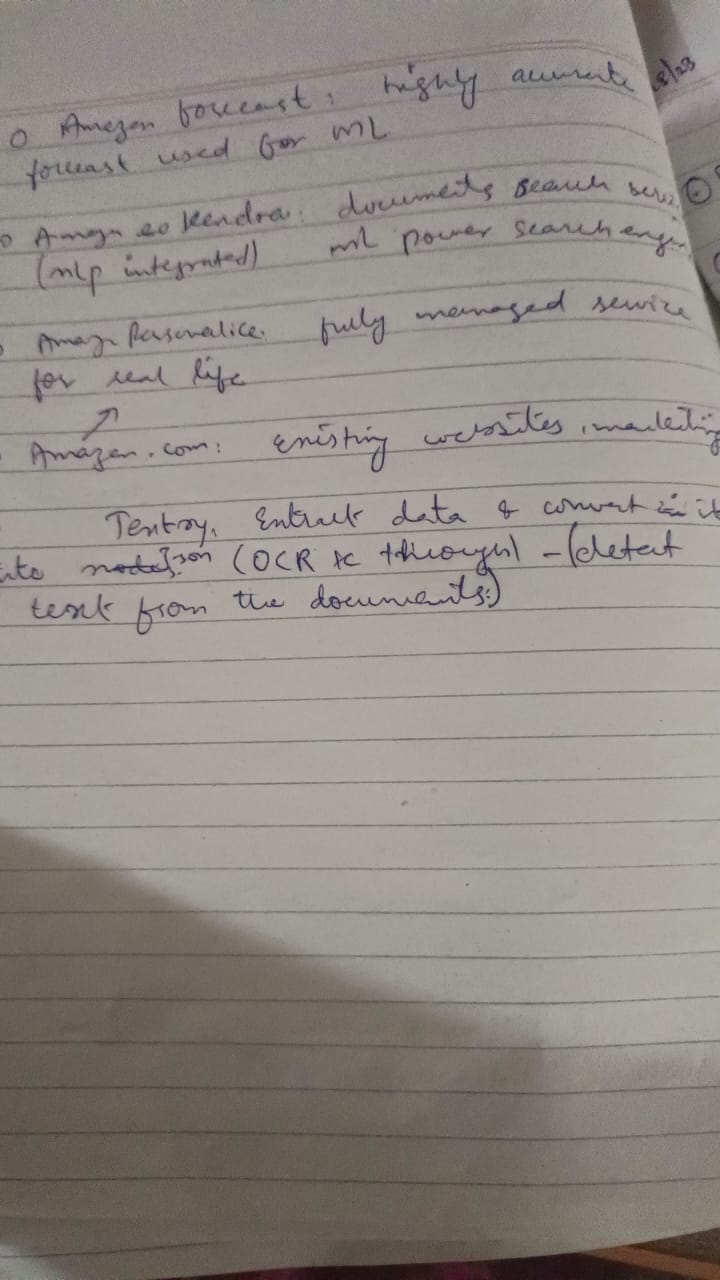 o Amazon forecast : highly accurate
forecast used for ML
o Amazon Kendra : documents search
(nlp integrated) ml power search
Amazon Personalice. fully managed service
for real life
Amazon.com : Existing websites, marketing
Extract data & convert it
json (OCR through) - (detect
text from the documents.)
8/23